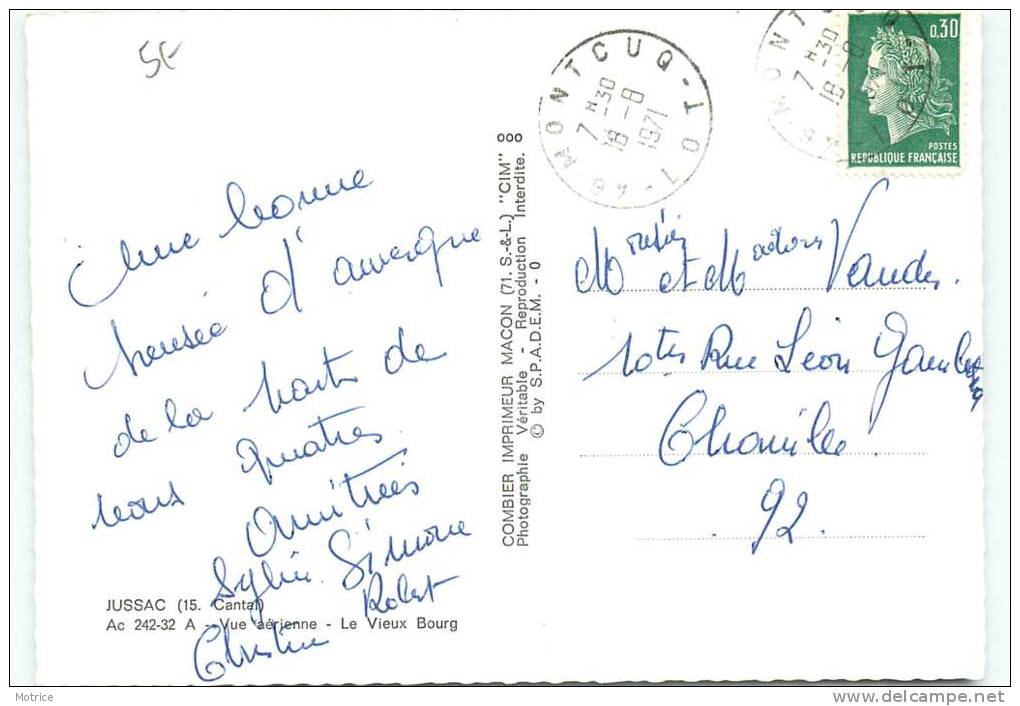 5€
Une bonne
pensée d'auvergne
de la part de
nous quatres.
Amitiés
Sylvie. Simone
Robert
Christine
JUSSAC (15. Cantal)
Ac 242-32 A - Vue aérienne - Le Vieux Bourg
COMBIER IMPRIMEUR MACON (71. S.-&-L.) "CIM"
Photographie Véritable - Reproduction Interdite.
© by S.P.A.D.E.M. - 0
MONTCUQ - LOT
7 H 30
18 - 8
1971
46
MONTCUQ - LOT
7 H 30
18 - 8
46
0,30
POSTES
REPUBLIQUE FRANÇAISE
Monsieur et Madame
10 ter Rue Léon Gambetta
Chaville.
92.
Motrice
http://www.delcampe.net